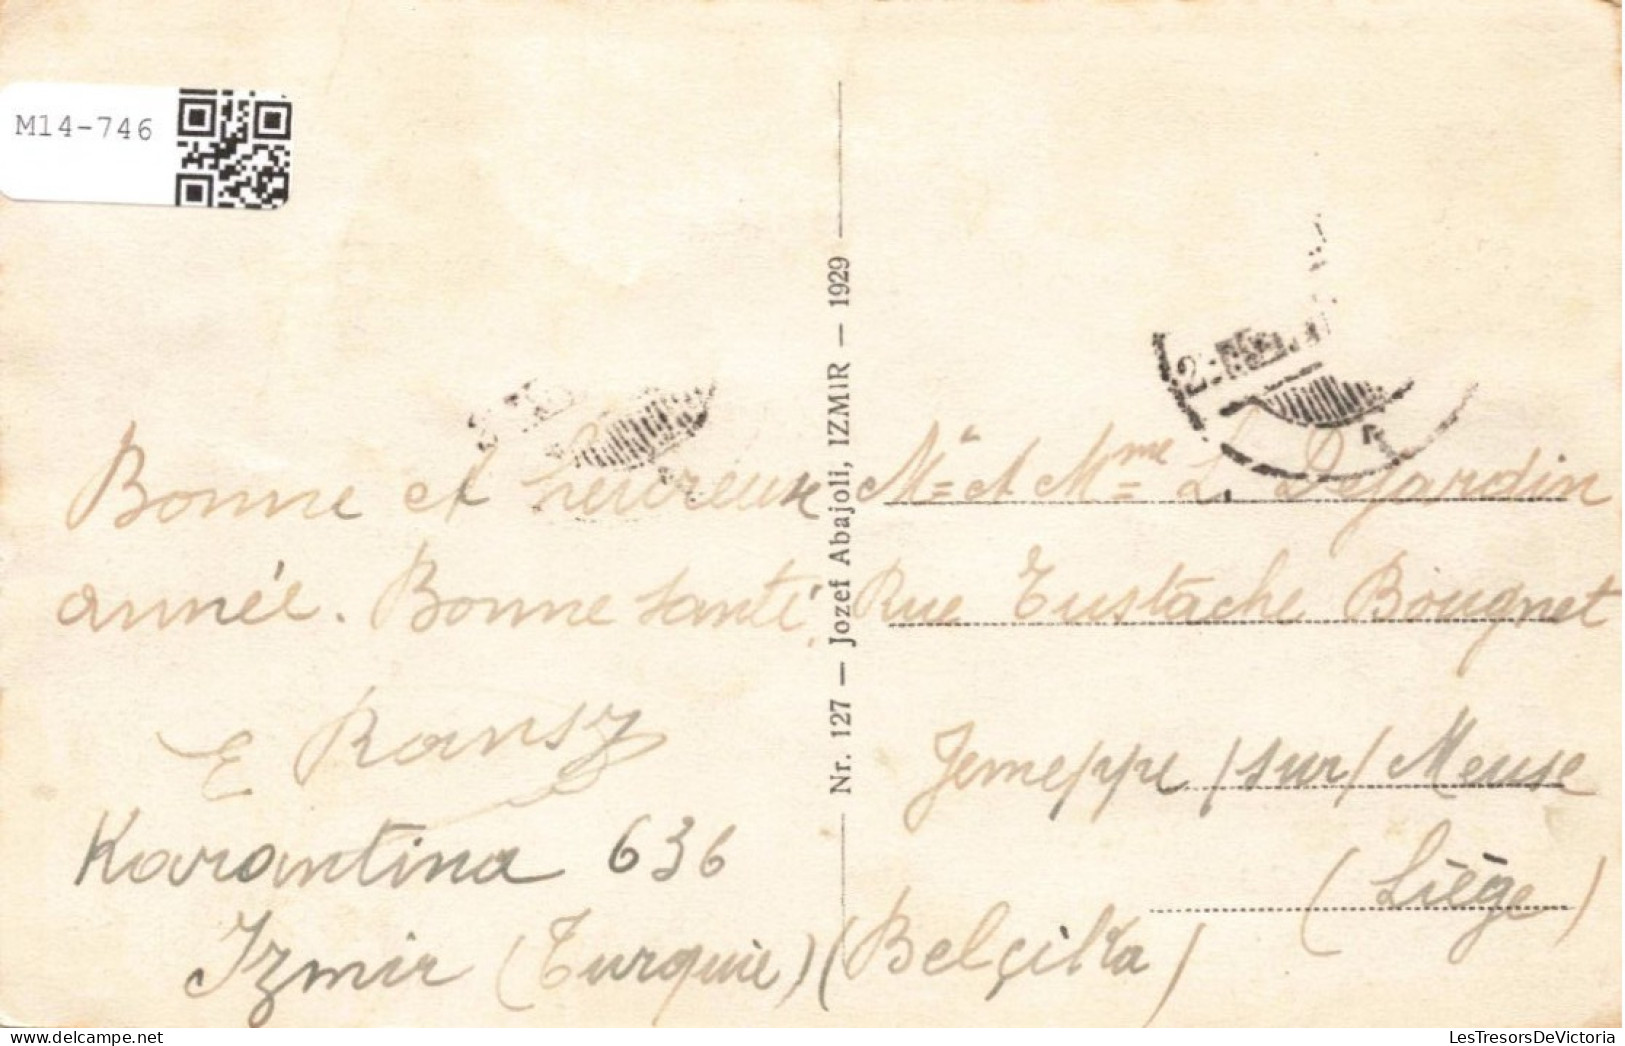 M14-746
Bonne et heureuse
année. Bonne santé.
E Ransy
Karantina 636
Izmir (Turquie)
Nr. 127 — Jozef Abajoli, IZMIR — 1929
Mr et Mme L Dejardin
Rue Eustache Bougnet
Jemeppe /sur/ Meuse
(Liège)
(Belçika)
delcampe.net
LesTresorsDeVictoria